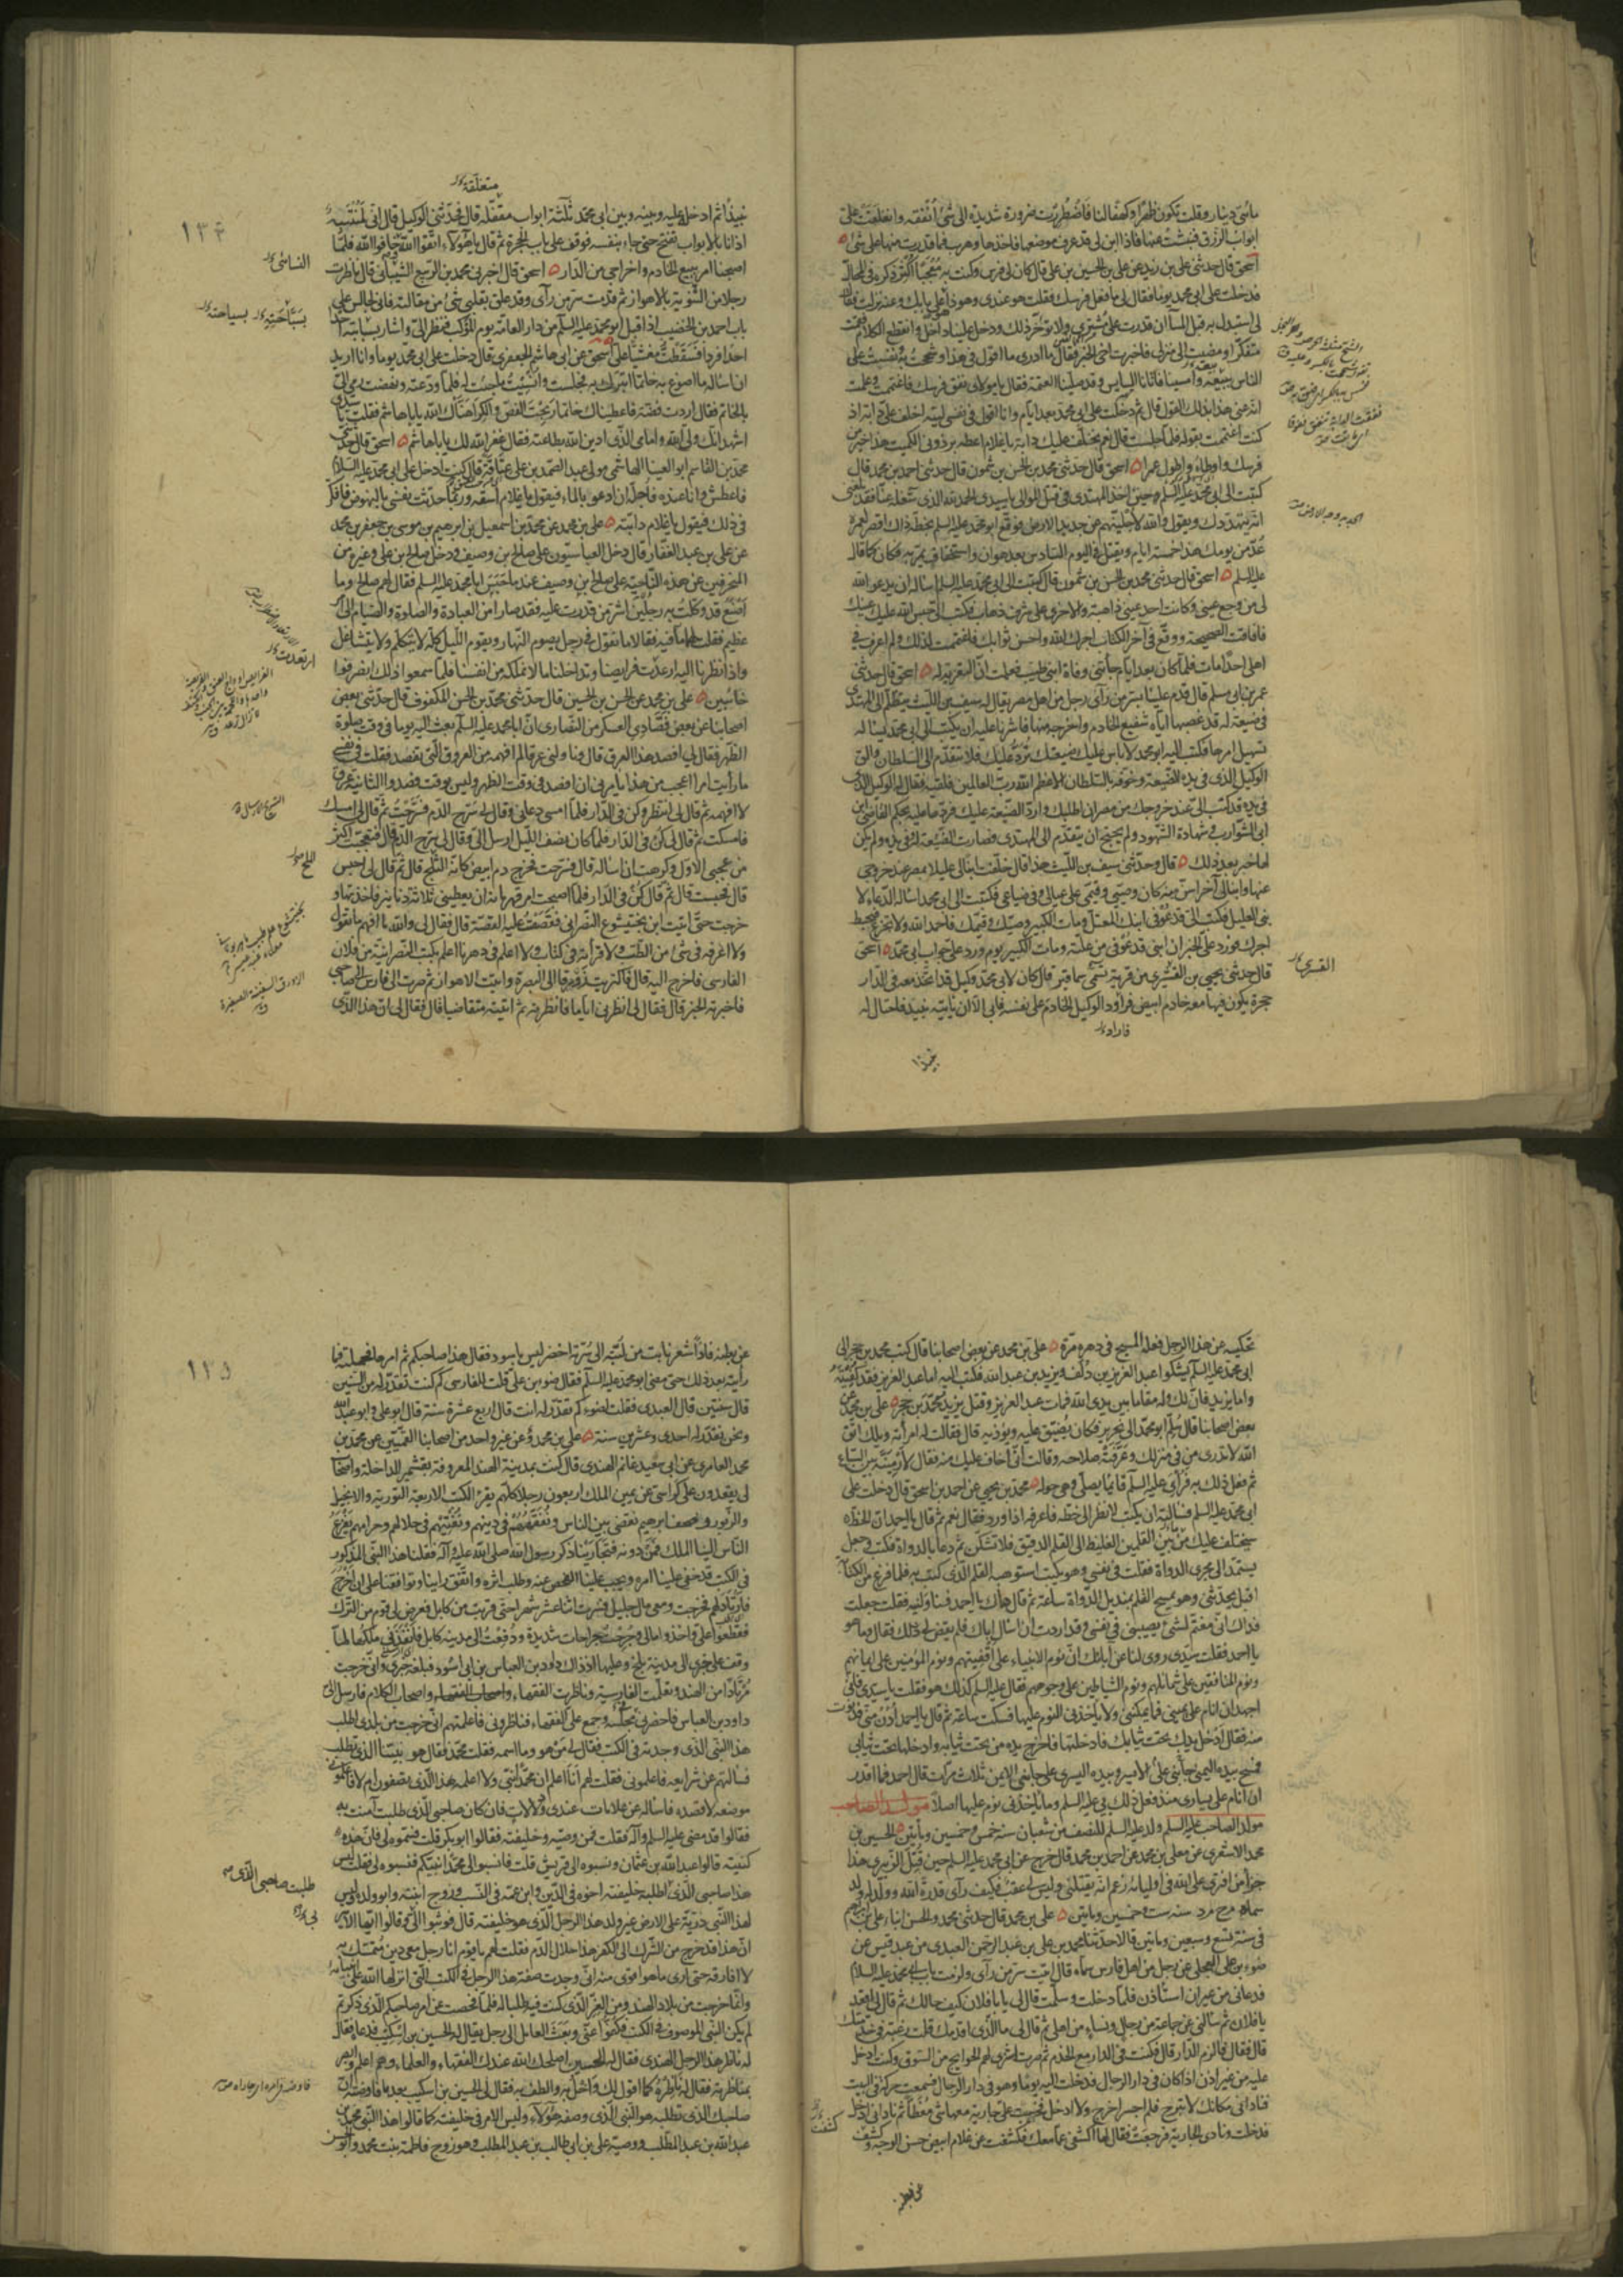 مأتى دينار وقلت تكون ظهرا وكهفا لنا فاضطررت ضرورة شديدة الى شئ انفقه وانغلقت على
ابواب الرزق فنبشت عنها فاذا ابن لى قد عرف موضعها فاخذها وهرب فما قدرت منها على شئ
اسحق قال حدثنى على بن زيد بن على بن الحسين بن على قال كان لى فرس وكنت به معجبا اكثر ذكره فى المحال
فدخلت على ابى محمد يوما فقال لى ما فعل فرسك فقلت هو عندى وهو ذا على بابك وعنه نزلت فقال
لى استبدل به قبل المسا ان قدرت على مشترى ولا تؤخر ذلك ودخل علينا داخل وانقطع الكلام فقمت
متفكرا ومضيت الى منزلى فاخبرت اخى الخبر فقال ما ادرى ما اقول فى هذا وشححت به ونفست على
الناس ببيعه وامسينا فاتانا السايس وقد صلينا العتمة فقال يا مولاى نفق فرسك فاغتممت وعلمت
انه عنى هذا بذلك القول قال ثم دخلت على ابى محمد بعد ايام وانا اقول فى نفسى ليته اخلف على دابة اذ
كنت اغتممت بقوله فلما جلست قال نعم نخلف عليك دابة يا غلام اعطه برذونى الكميت هذا خير من
فرسك واوطاء واطول عمرا اسحق قال حدثنى محمد بن الحسن بن شمون قال حدثنى احمد بن محمد قال
كتبت الى ابى محمد عليه السلم حين اخذ المهتدى فى قتل الموالى يا سيدى الحمد لله الذى شغله عنا فقد بلغنى
انه يتهددك ويقول والله لاجلينهم عن جديد الارض فوقع ابو محمد عليه السلم بخطه ذاك اقصر لعمره
عد من يومك هذا خمسة ايام ويقتل فى اليوم السادس بعد هوان واستخفاف يمر به فكان كما قال
عليه السلم اسحق قال حدثنى محمد بن الحسن بن شمون قال كتبت الى ابى محمد عليه السلم اساله ان يدعو الله
لى من وجع عينى وكانت احدى عينى ذاهبة والاخرى على شرف ذهاب فكتب الى حبس الله عليك عينك
فافاقت الصحيحة ووقع فى آخر الكتاب اجرك الله واحسن ثوابك فاغتممت لذلك ولم اعرف فى
اهلى احدا مات فلما كان بعد ايام جاءتنى وفاة ابنى طيب فعلمت ان التعزية له اسحق قال حدثنى
عمر بن ابى مسلم قال قدم علينا بسر من راى رجل من اهل مصر يقال له سيف بن الليث يتظلم الى المهتدى
فى ضيعة له قد غصبها اياه شفيع الخادم واخرجه منها فاشرنا عليه ان يكتب الى ابى محمد يساله
تسهيل امرها فكتب اليه ابو محمد لا باس عليك ضيعتك ترد عليك فلا تتقدم الى السلطان والق
الوكيل الذى فى يده الضيعة وخوفه بالسلطان الاعظم الله رب العالمين فلقيه فقال له الوكيل الذى
فى يده قد كتب الى عند خروجك من مصر ان اطلبك وارد الضيعة عليك فردها عليه بحكم القاضى ابن
ابى الشوارب وشهادة الشهود ولم يحتج ان يتقدم الى المهتدى فصارت الضيعة له وفى يده ولم يكن
لها خبر بعد ذلك قال وحدثنى سيف بن الليث هذا قال خلفت ابنا لى عليلا بمصر عند خروجى
عنها وابنا لى آخر اسن منه كان وصيى وقيمى على عيالى وفى ضياعى فكتبت الى ابى محمد اساله الدعاء لا
بنى العليل فكتب الى قد عوفى ابنك المعتل ومات الكبير وصيك وقيمك فاحمد الله ولا تجزع فيحبط
اجرك فورد على الخبر ان ابنى قد عوفى من علته ومات الكبير يوم ورد على جواب ابى محمد اسحق
قال حدثنى يحيى بن القشيرى من قرية تسمى قير قال كان لابى محمد وكيل قد اتخذ معه فى الدار
حجرة يكون فيها معه خادم ابيض فراود الوكيل الخادم على نفسه فابى الا ان ياتيه بنبيذ فاحتال له
فاراد
نبيذا
القسرى
متعلقة
١٣٤
نبيذا ثم ادخله عليه وبينه وبين ابى محمد ثلثة ابواب مقفلة قال فحدثنى الوكيل قال انى لمنتبه
اذ انا بالابواب تفتح حتى جاء بنفسه فوقف على باب الحجرة ثم قال يا هؤلاء اتقوا الله خافوا الله فلما
اصبحنا امر ببيع الخادم واخراجى من الدار اسحق قال اخبرنى محمد بن الربيع الشيبانى قال ناظرت
رجلا من الثنوية بالاهواز ثم قدمت سر من راى وقد علق بقلبى شئ من مقالته فانى لجالس على
باب احمد بن الخضيب اذ اقبل ابو محمد عليه السلم من دار العامة يوم الموكب فنظر الى واشار بسبابته احدا
احدا فردا فسقطت مغشيا على اسحق عن ابى هاشم الجعفرى قال دخلت على ابى محمد يوما وانا اريد
ان اساله ما اصوغ به خاتما اتبرك به فجلست وانسيت ما جئت له فلما ودعته ونهضت رمى الى
بالخاتم فقال اردت فضة فاعطيناك خاتما ربحت الفص والكرا هناك الله يابا هاشم فقلت يا سيدى
اشهد انك ولى الله وامامى الذى ادين الله بطاعته فقال غفر الله لك يابا هاشم اسحق قال حدثنى
محمد بن القاسم ابو العينا الهاشمى مولى عبد الصمد بن على عتاقة قال كنت ادخل على ابى محمد عليه السلام
فاعطش وانا عنده فاجله ان ادعو بالماء فيقول يا غلام اسقه وربما حدثت نفسى بالنهوض فافكر
فى ذلك فيقول يا غلام دابته على بن محمد عن محمد بن اسمعيل بن ابراهيم بن موسى بن جعفر بن محمد
عن على بن عبد الغفار قال دخل العباسيون على صالح بن وصيف ودخل صالح بن على وغيره من
المنحرفين عن هذه الناحية على صالح بن وصيف عند ما حبس ابا محمد عليه السلم فقال لهم صالح وما
اصنع قد وكلت به رجلين اشر من قدرت عليه فقد صارا من العبادة والصلوة والصيام الى امر
عظيم فقلت لهما ما فيه فقالا ما تقول فى رجل يصوم النهار ويقوم الليل كله لا يتكلم ولا يتشاغل
واذا نظرنا اليه ارتعدت فرايصنا وتداخلنا ما لا نملكه من انفسنا فلما سمعوا ذلك انصرفوا
خائبين على بن محمد عن الحسن بن الحسين قال حدثنى محمد بن الحسن المكفوف قال حدثنى بعض
اصحابنا عن بعض فصادى العسكر من النصارى ان ابا محمد عليه السلم بعث اليه يوما فى وقت صلوة
الظهر فقال لى افصد هذا العرق قال وناولنى عرقا لم افهمه من العروق التى تفصد فقلت فى نفسى
ما رأيت امرا اعجب من هذا يامرنى ان افصد فى وقت الظهر وليس بوقت فصد والثانية عرق
لا افهمه ثم قال لى انتظر وكن فى الدار فلما امسى دعانى وقال لى سرح الدم فسرحت ثم قال لى امسك
فامسكت ثم قال لى كن فى الدار فلما كان نصف الليل ارسل الى وقال لى سرح الدم قال فتعجبت اكثر
من عجبى الاول وكرهت ان اساله قال فسرحت فخرج دم ابيض كانه الثلج قال ثم قال لى احبس
قال فحبست قال ثم قال كن فى الدار فلما اصبحت امر قهرمانه ان يعطينى ثلاثة دنانير فاخذتها و
خرجت حتى اتيت ابن بختيشوع النصرانى فقصصت عليه القصة قال فقال لى والله ما افهم ما تقول
ولا اعرفه فى شئ من الطب ولا قرأته فى كتاب ولا اعلم فى دهرنا اعلم بكتب النصرانية من فلان
الفارسى فاخرج اليه قال فاكتريت زورقا الى البصرة واتيت الاهواز ثم صرت الى فارس الى صاحبى
فاخبرته الخبر قال فقال لى انظرنى اياما فانظرته ثم اتيته متقاضيا قال فقال لى ان هذا الذى
النسائى
بسباحته بسياحته
ارتعدت
الملح
تحكيه عن هذا الرجل فعله المسيح فى دهره مرة على بن محمد عن بعض اصحابنا قال كتب محمد بن حجر الى
ابى محمد عليه السلم يشكو اعبد العزيز بن دلف ويزيد بن عبد الله فكتب اليه اما عبد العزيز فقد كفيته
واما يزيد فان لك وله مقاما بين يدى الله فمات عبد العزيز وقتل يزيد محمد بن حجر على بن محمد عن
بعض اصحابنا قال سلم ابو محمد الى نحرير فكان يضيق عليه ويؤذيه قال فقالت له امرأته ويلك اتق
الله لا تدرى من فى منزلك وعرفته صلاحه وقالت انى اخاف عليك منه فقال لارمينه بين السباع
ثم فعل ذلك به فرأى عليه السلم قائما يصلى وهى حوله محمد بن يحيى عن احمد بن اسحق قال دخلت على
ابى محمد عليه السلم فسالته ان يكتب لانظر الى خطه فاعرفه اذا ورد فقال نعم ثم قال يا احمد ان الخط
سيختلف عليك من بين القلم الغليظ الى القلم الدقيق فلا تشكن ثم دعا بالدواة فكتب وجعل
يستمد الى مجرى الدواة فقلت فى نفسى وهو يكتب استوهبه القلم الذى كتب به فلما فرغ من الكتابة
اقبل يحدثنى وهو يمسح القلم بمنديل الدواة ساعة ثم قال هاك يا احمد فناولنيه فقلت جعلت
فداك انى مغتم لشئ يصيبنى فى نفسى وقد اردت ان اسال اباك فلم يقض لى ذلك فقال وما هو
يا احمد فقلت سيدى روى لنا عن آبائك ان نوم الانبياء على اقفيتهم ونوم المؤمنين على ايمانهم
ونوم المنافقين على شمائلهم ونوم الشياطين على وجوههم فقال عليه السلم كذلك هو فقلت يا سيدى فانى
اجهد ان انام على يمينى فما يمكننى ولا ياخذنى النوم عليها فسكت ساعة ثم قال يا احمد ادن منى فدنوت
منه فقال ادخل يدك تحت ثيابك فادخلتها فاخرج يده من تحت ثيابه وادخلها تحت ثيابى
فمسح بيده اليمنى جانبى على الايسر وبيده اليسرى على جانبى الايمن ثلاث مرات قال احمد فما اقدر
ان انام على يسارى منذ فعل ذلك بى عليه السلم وما ياخذنى نوم عليها اصلا مولد الصاحب
مولد الصاحب عليه السلم ولد عليه السلم للنصف من شعبان سنة خمس وخمسين ومأتين الحسين بن
محمد الاشعرى عن معلى بن محمد عن احمد بن محمد قال خرج عن ابى محمد عليه السلم حين قتل الزبيرى هذا
جزاء من افترى على الله فى اوليائه زعم انه يقتلنى وليس لى عقب فكيف رأى قدرة الله وولد له ولد
سماه م ح م د سنة ست وخمسين ومأتين على بن محمد قال حدثنى محمد والحسن ابناء على بن ابراهيم
فى سنة تسع وسبعين ومأتين قالا حدثنا محمد بن على بن عبد الرحمن العبدى من عبد قيس عن
ضوء بن على العجلى عن رجل من اهل فارس سماه قال اتيت سر من رآى ولزمت باب ابى محمد عليه السلام
فدعانى من غير ان استأذن فلما دخلت وسلمت قال لى يابا فلان كيف حالك ثم قال لى اقعد
يا فلان ثم سالنى عن جماعة من رجال ونساء من اهلى ثم قال لى ما الذى اقدمك قلت رغبة فى خدمتك
قال فقال فالزم الدار قال فكنت فى الدار مع الخدم ثم صرت اشترى لهم الحوايج من السوق وكنت ادخل
عليه من غير اذن اذا كان فى دار الرجال فدخلت اليه يوما وهو فى دار الرجال فسمعت حركة فى البيت
فنادانى مكانك لا تبرح فلم اجسر اخرج ولا ادخل فخرجت على جارية معها شئ مغطا ثم نادانى ادخل
فدخلت ونادى الجارية فرجعت فقال لها اكشفى عما معك فكشفت عن غلام ابيض حسن الوجه وكشف
كشفت
عن بطنه
عن بطنه فاذا شعر نابت من لبته الى سرته اخضر ليس باسود فقال هذا صاحبكم ثم امرها فحملته فما
رأيته بعد ذلك حتى مضى ابو محمد عليه السلم فقال ضوء بن على قلت للفارسى كم كنت تقدر له من السنين
قال سنتين قال العبدى فقلت لضوء كم تقدر له انت قال اربع عشرة سنة قال ابو على وابو عبد الله
ونحن نقدر له احدى وعشرين سنة على بن محمد وعن غير واحد من اصحابنا القميين عن محمد بن
محمد العامرى عن ابى سعيد غانم الهندى قال كنت بمدينة الهند المعروفة بقشمير الداخلة واصحاب
لى يقعدون على كراسى عن يمين الملك اربعون رجلا كلهم يقرء الكتب الاربعة التورية والانجيل
والزبور وصحف ابرهيم نقضى بين الناس ونفقههم فى دينهم ونفتيهم فى حلالهم وحرامهم يفزع
الناس الينا الملك فمن دونه فتجارينا ذكر رسول الله صلى الله عليه وآله فقلنا هذا النبى المذكور
فى الكتب قد خفى علينا امره ويجب علينا الفحص عنه وطلب اثره واتفق راينا وتوافقنا على ان اخرج
فارتاد لهم فخرجت ومعى مال جليل فسرت اثنا عشر شهرا حتى قربت من كابل فعرض لى قوم من الترك
فقطعوا على واخذوا مالى وجرحت جراحات شديدة ودفعت الى مدينة كابل فانفذنى ملكها لما
وقف على خبرى الى مدينة بلخ وعليها اذ ذاك داود بن العباس بن ابى اسود فبلغه خبرى وانى خرجت
مرتادا من الهند وتعلمت الفارسية وناظرت الفقهاء واصحاب الكلام فارسل الى
داود بن العباس فاحضرنى مجلسه وجمع على الفقهاء فناظرونى فاعلمتهم انى خرجت من بلدى اطلب
هذا النبى الذى وجدته فى الكتب فقال لى من هو وما اسمه فقلت محمد فقال هو نبينا الذى تطلب
فسالتهم عن شرايعه فاعلمونى فقلت لهم انا اعلم ان محمدا نبى ولا اعلمه هذا الذى تصفون ام لا فاعلمونى
موضعه لاقصده فاساله عن علامات عندى ودلالات فان كان صاحبى الذى طلبت آمنت به
فقالوا قد مضى عليه السلم وآله فقلت فمن وصيه وخليفته فقالوا ابو بكر قلت فسموه لى فان هذه
كنيته قالوا عبد الله بن عثمان ونسبوه الى قريش قلت فانسبوا لى محمدا نبيكم فنسبوه لى فقلت ليس
هذا صاحبى الذى اطلبه خليفته اخوه فى الدين وابن عمه فى النسب وزوج ابنته وابو ولده ليس
لهذا النبى ذرية على الارض غير ولد هذا الرجل الذى هو خليفته قال فوثبوا الى وقالوا ايها الامير
ان هذا قد خرج من الشرك الى الكفر هذا حلال الدم فقلت لهم يا قوم انا رجل معى دين متمسك به
لا افارقه حتى ارى ما هو اقوى منه انى وجدت صفة هذا الرجل فى الكتب التى انزلها الله على انبيائه
وانما خرجت من بلاد الهند ومن العز الذى كنت فيه طلبا له فلما فحصت عن امر صاحبكم الذى ذكرتم
لم يكن النبى الموصوف فى الكتب فكفوا عنى وبعث العامل الى رجل يقال له الحسين بن اسكيب فدعاه فقال
له ناظر هذا الرجل الهندى فقال له الحسين اصلحك الله عندك الفقهاء والعلماء وهم اعلم وابصر
بمناظرته فقال له ناظره كما اقول لك واخل به والطف به فقال لى الحسين بن اسكيب بعد ما فاوضته ان
صاحبك الذى تطلبه هو النبى الذى وصفه هؤلاء وليس الامر فى خليفته كما قالوا هذا النبى محمد بن
عبد الله بن عبد المطلب ووصيه على بن ابى طالب بن عبد المطلب وهو زوج فاطمة بنت محمد وابو الحسن
طلبت صاحبى الذى